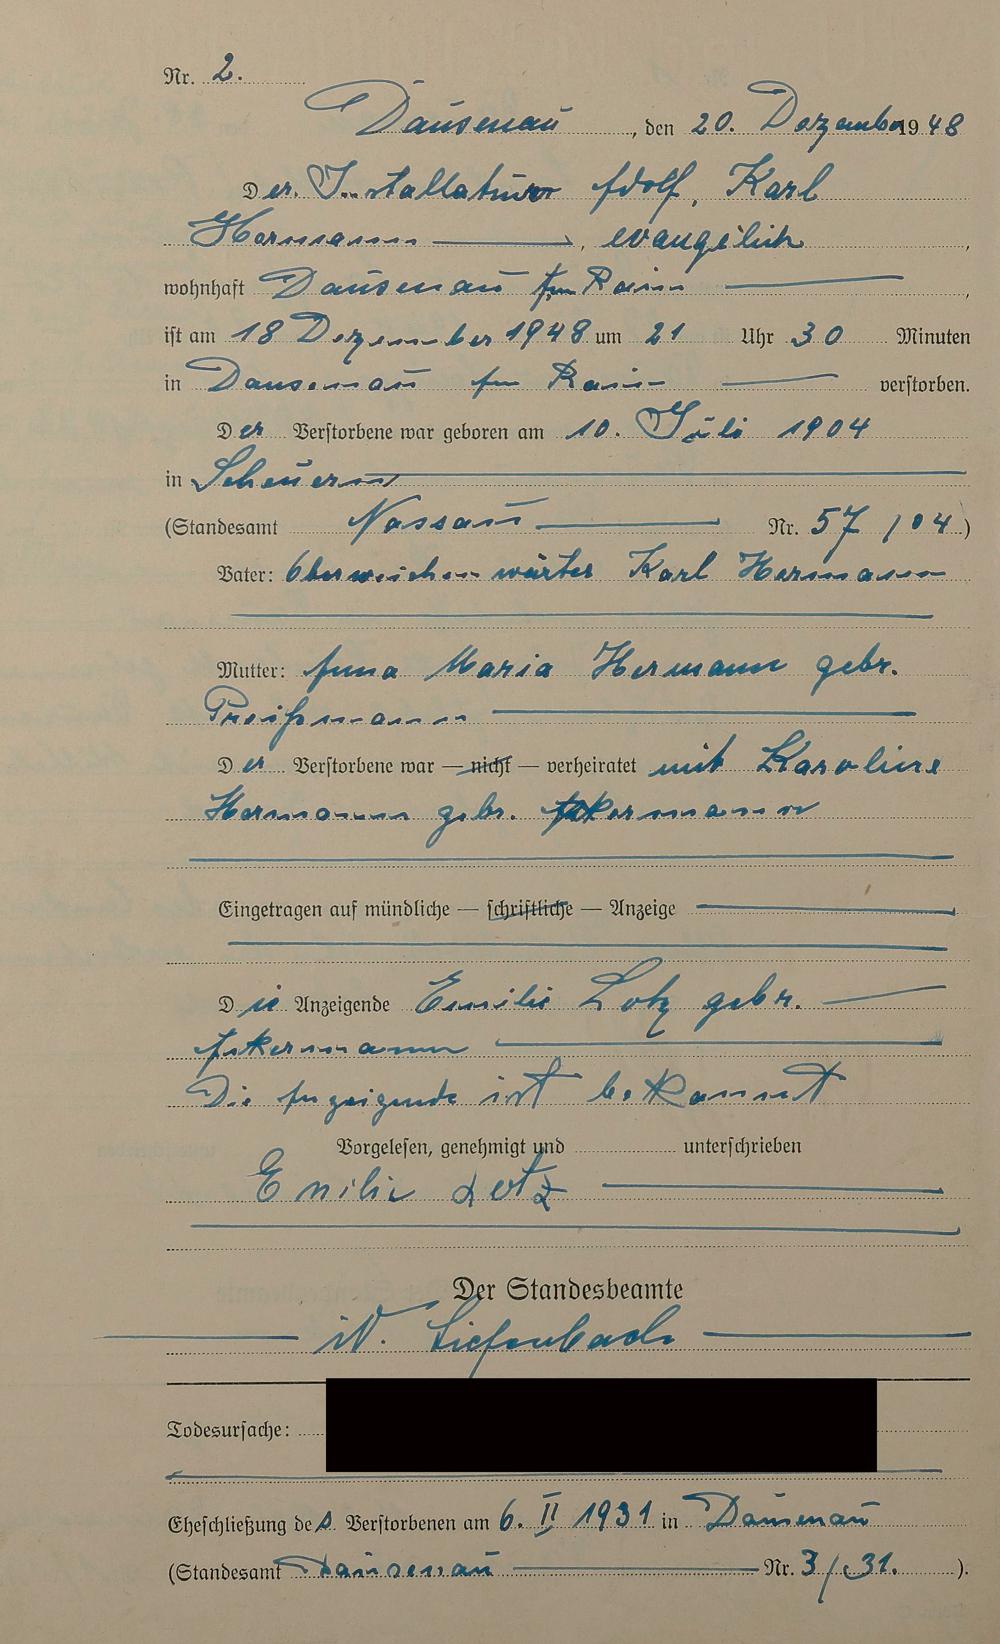 Nr. 2.
Dausenau, den 20. Dezember 1948
Der Installateur Adolf, Karl
Hermann, evangelisch,
wohnhaft Dausenau Am Rain,
ist am 18 Dezember 1948 um 21 Uhr 30 Minuten
in Dausenau Am Rain verstorben.
Der Verstorbene war geboren am 10. Juli 1904
in Scheuern
(Standesamt Nassau Nr. 57/04)
Vater: Oberweichenwärter Karl Hermann
Mutter: Anna Maria Hermann gebr.
Preißmann
Der Verstorbene war — nicht — verheiratet mit Karoline
Hermann gebr. Ackermann
Eingetragen auf mündliche — schriftliche — Anzeige
Die Anzeigende Emilie Lotz gebr.
Ackermann
Die Anzeigende ist bekannt
Vorgelesen, genehmigt und unterschrieben
Emilie Lotz
Der Standesbeamte
Todesursache:
Eheschließung des Verstorbenen am 6. II 1931 in Dausenau
(Standesamt Dausenau Nr. 3/31.).